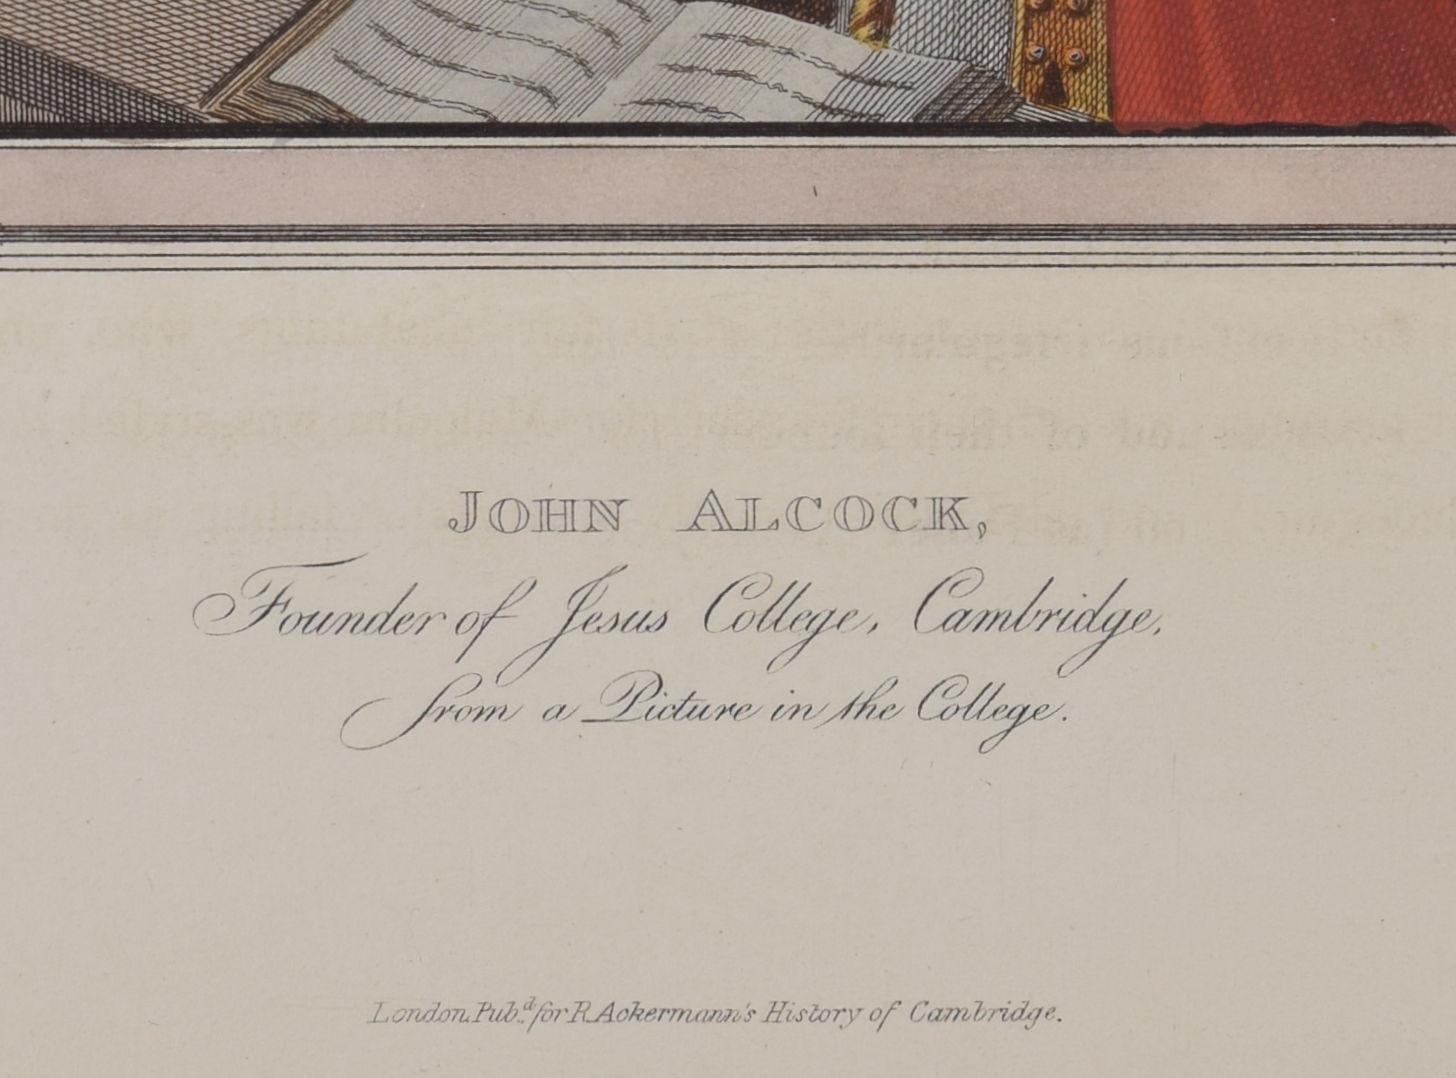 JOHN ALCOCK,
Founder of Jesus College, Cambridge,
from a Picture in the College.
London. Pub.d for R. Ackermann's History of Cambridge.